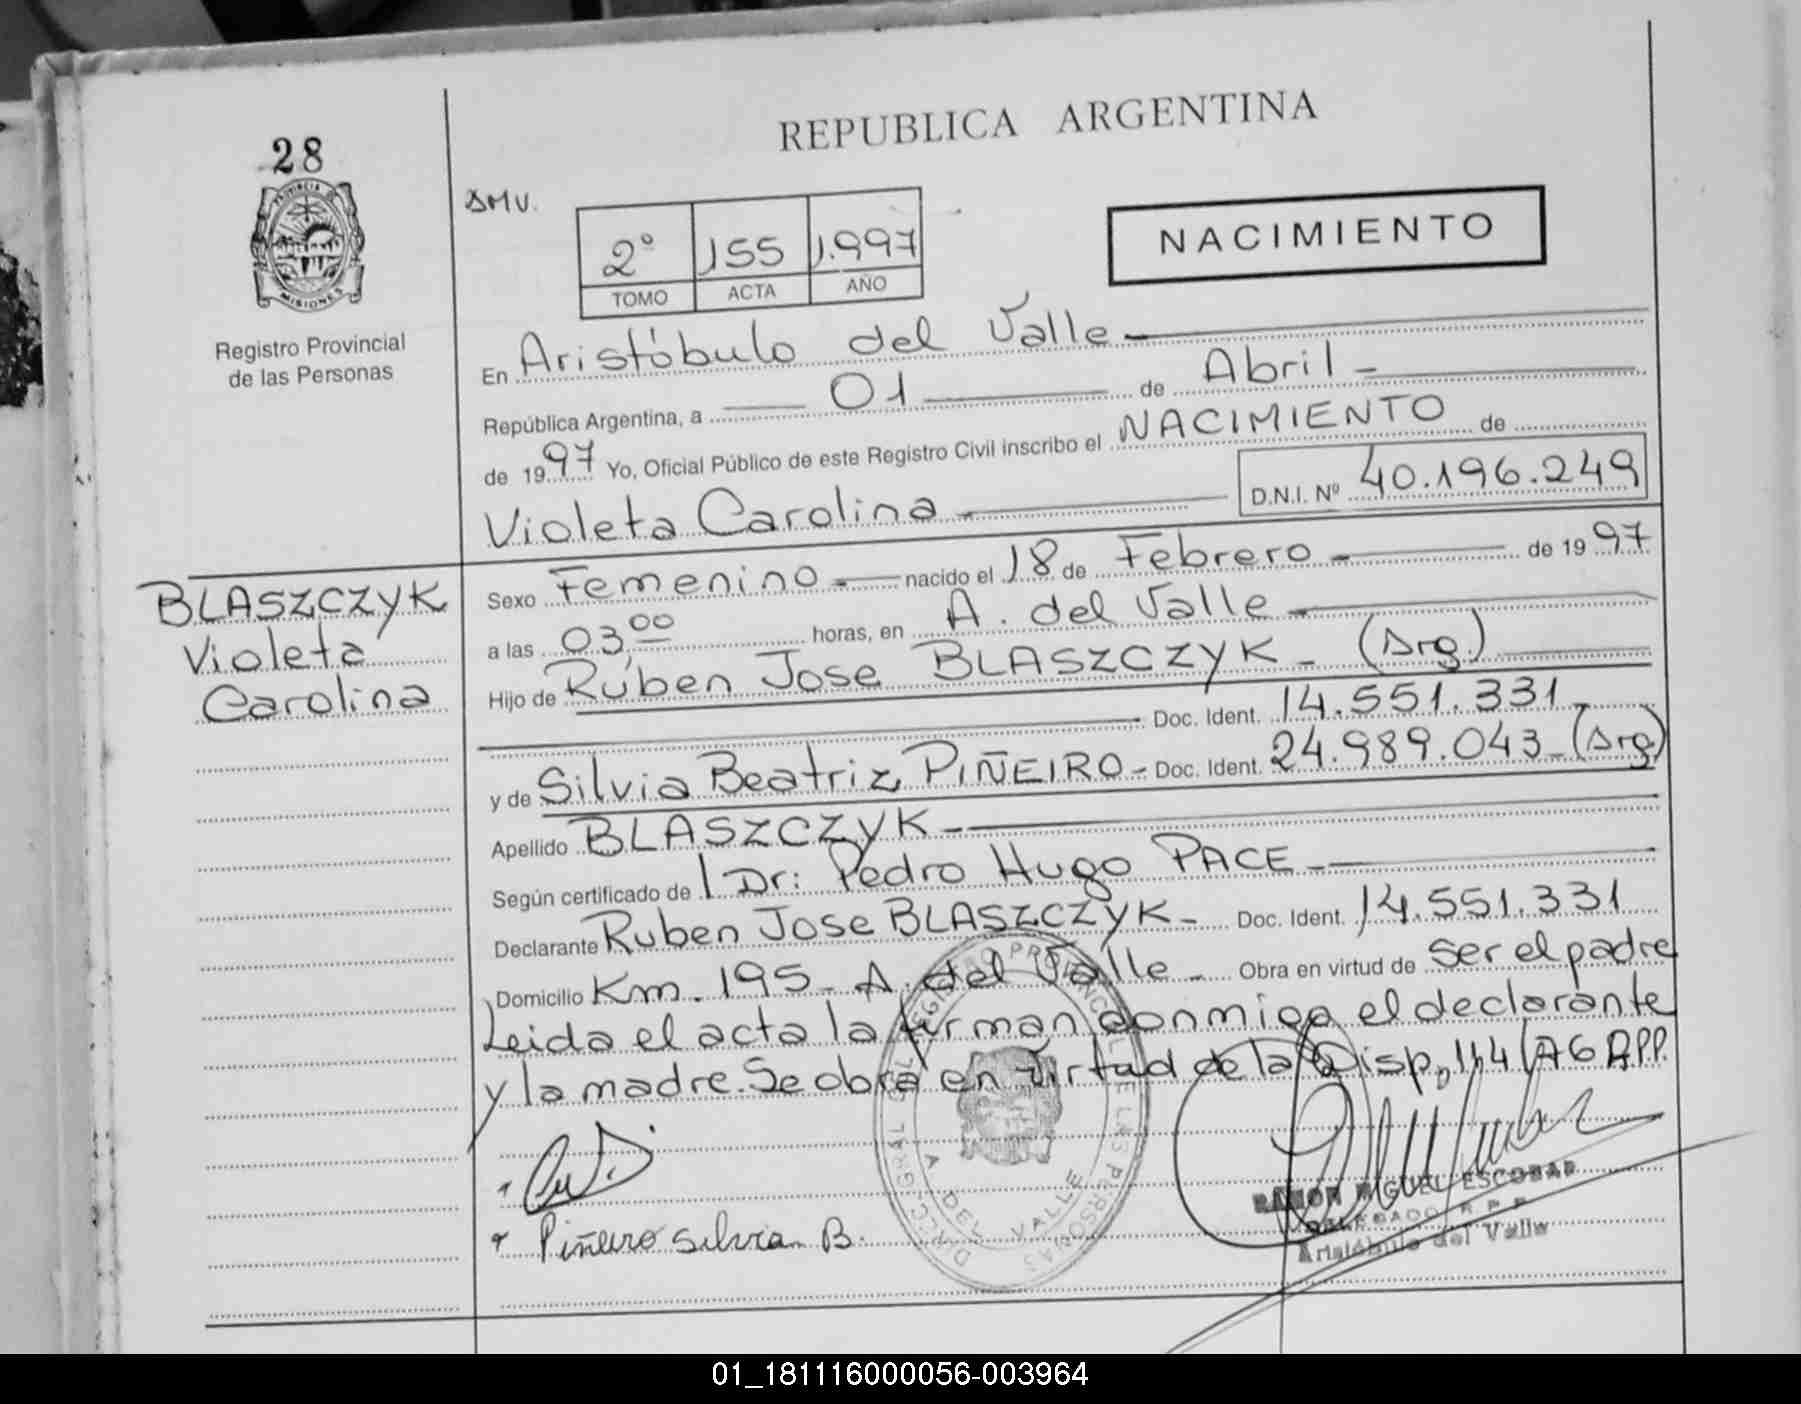 REPUBLICA ARGENTINA
28
PROVINCIA DE
MISIONES
Registro Provincial
de las Personas
SMV.
2° 155 1.997
TOMO ACTA AÑO
NACIMIENTO
En Aristóbulo del Valle
República Argentina, a 01 de Abril
de 1997 Yo, Oficial Público de este Registro Civil inscribo el NACIMIENTO de
Violeta Carolina D.N.I. Nº 40.196.249
BLASZCZYK
Violeta
Carolina
Sexo Femenino nacido el 18 de Febrero de 1997
a las 03,00 horas, en A. del Valle
Hijo de Ruben Jose BLASZCZYK - (Arg.)
Doc. Ident. 14.551.331
y de Silvia Beatriz PIÑEIRO - Doc. Ident. 24.989.043 - (Arg)
Apellido BLASZCZYK
Según certificado de l Dr: Pedro Hugo PACE
Declarante Ruben Jose BLASZCZYK - Doc. Ident. 14.551.331
Domicilio Km. 195 - A. del Valle - Obra en virtud de ser el padre
Leida el acta la firman conmigo el declarante
y la madre. Se obra en virtud de la Disp,
Piñeiro Silvia B.
A DEL VALLE
RAMON MIGUEL ESCOBAR
DELEGADO R P P
Aristóbulo del Valle
01_181116000056-003964